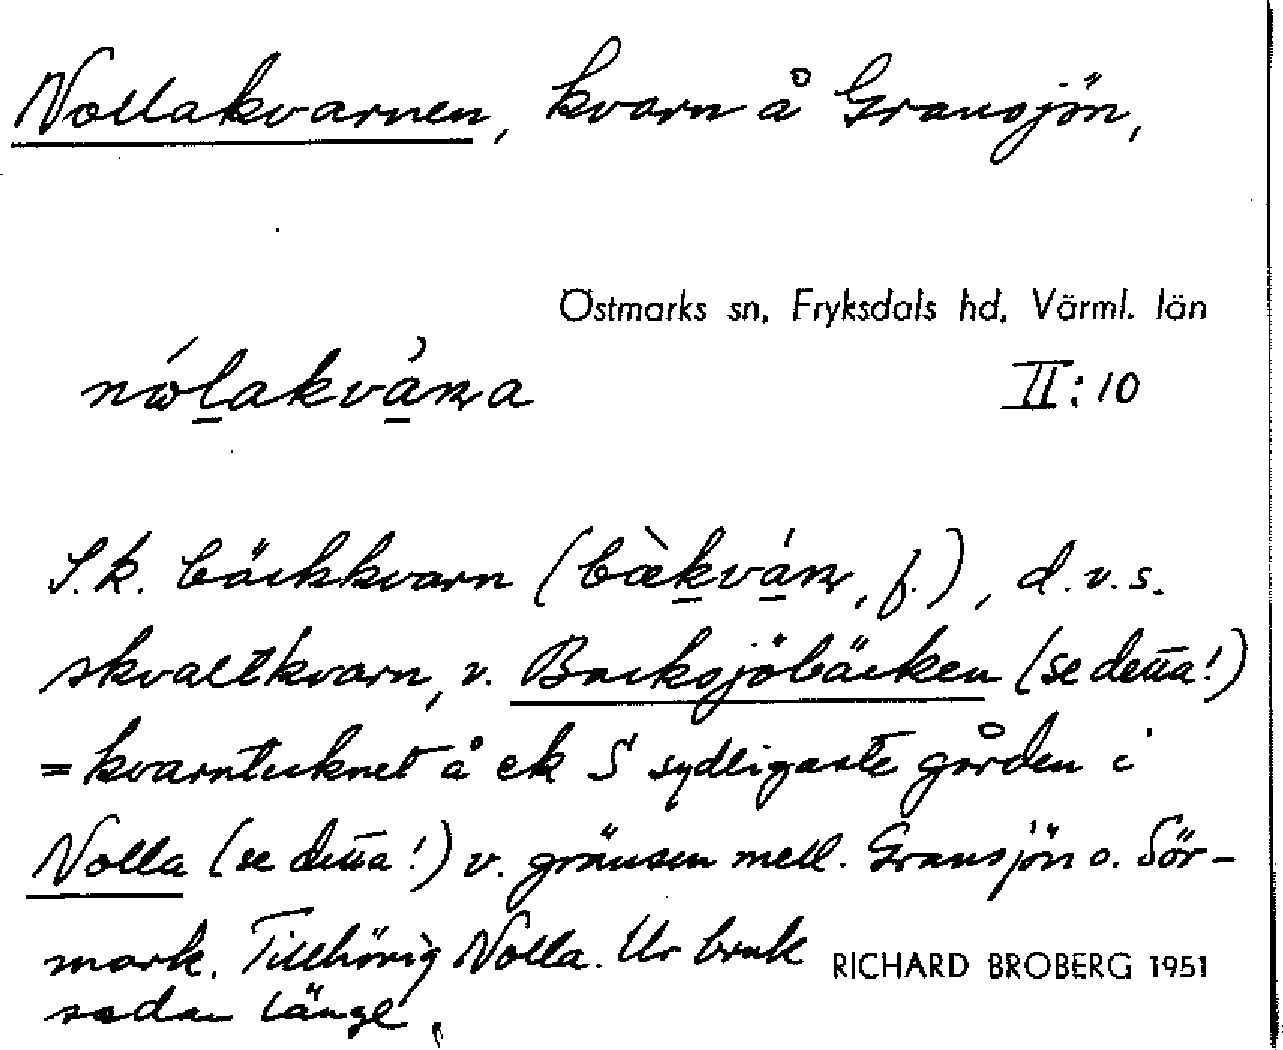 Nollakvarnen, kvarn å Gransjön,
Östmarks sn, Fryksdals hd, Värml. län
nώl̲akvá̲rṇa II:10
S.k. bäckkvarn (bæ̀k̲vá̲rṇ, f.), d.v.s.
skvaltkvarn, v. Backsjöbäcken (se detta!)
= kvarntecknet å ek S sydligaste gården i
Nolla (se detta!) v. gränsen mell. Gransjön o. Sör-
mark. Tillhörig Nolla. Ur bruk
sedan länge.
RICHARD BROBERG 1951